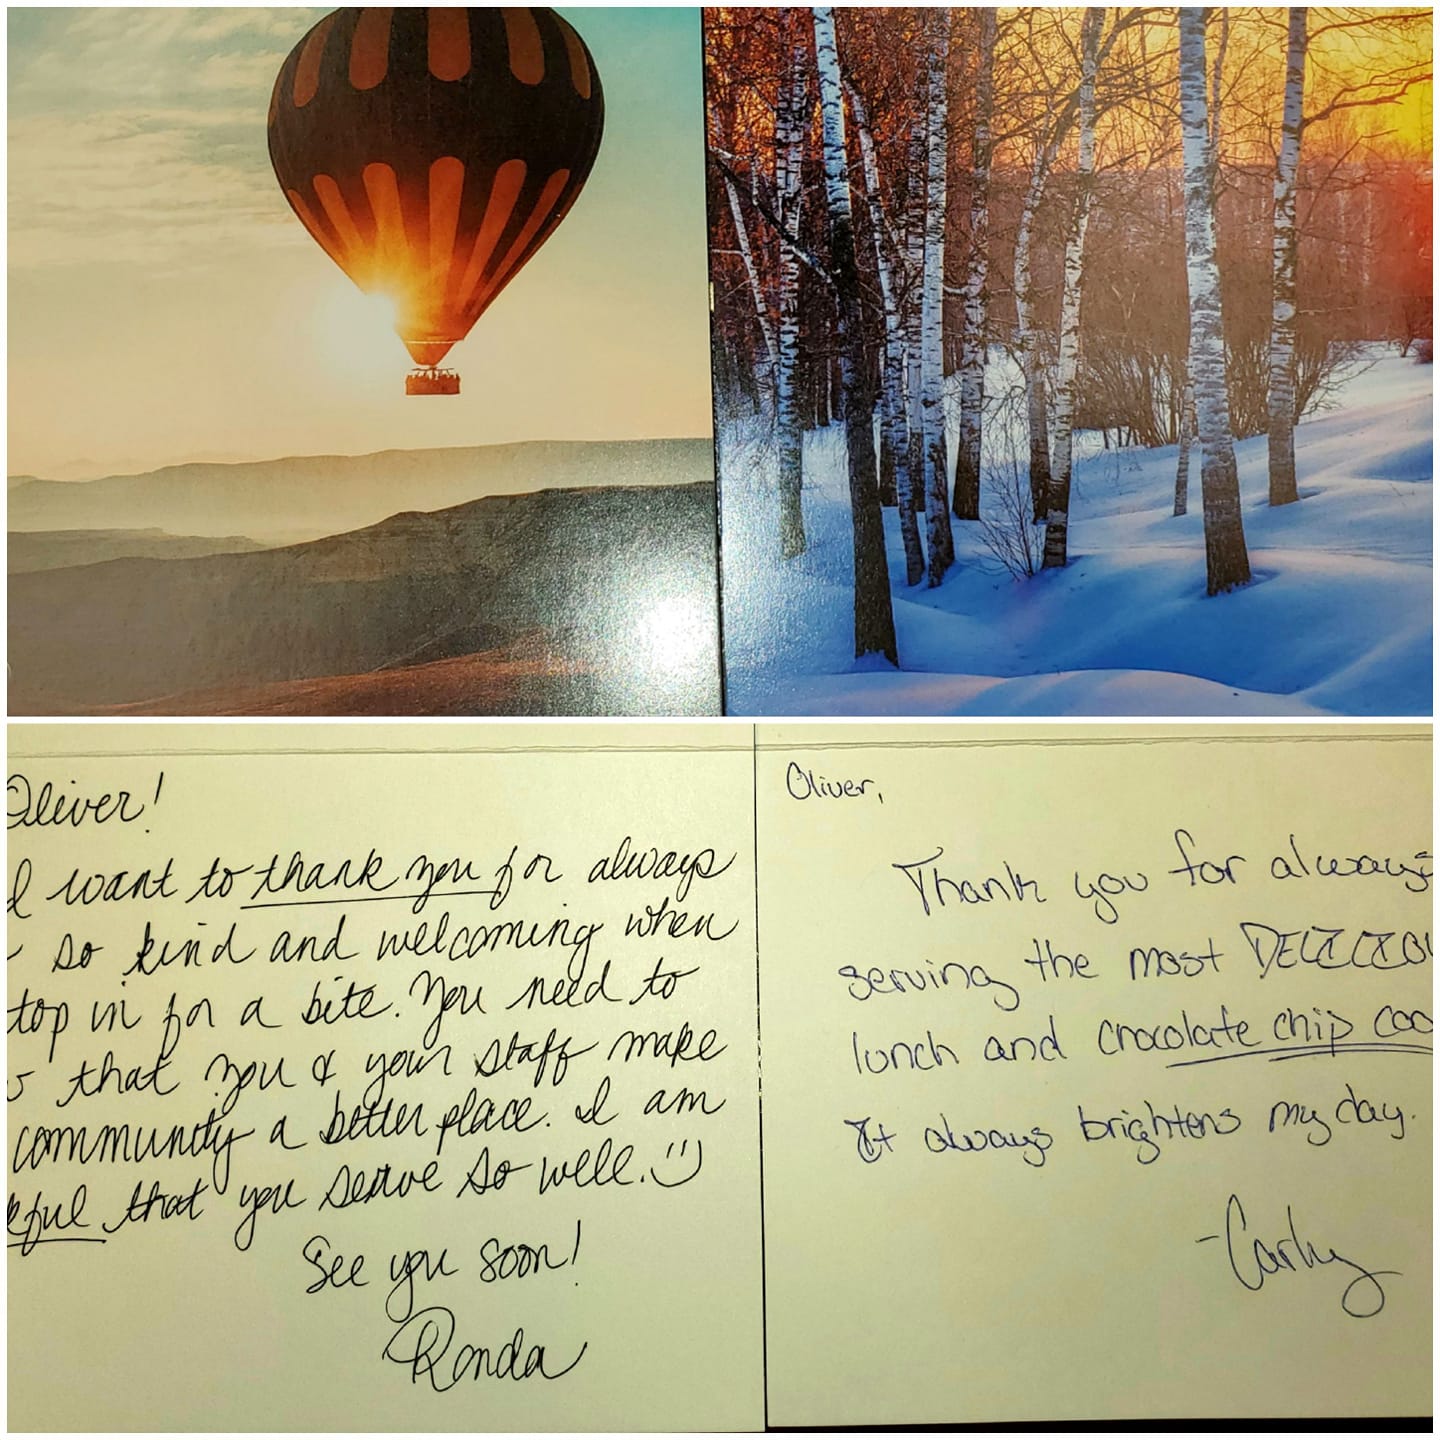 Oliver!
I want to thank you for always
so kind and welcoming when
top in for a bite. You need to
that you & your staff make
community a better place. I am
kful that you serve so well.
See you soon!
Ronda
Oliver,
Thank you for always
serving the most DELICIOU
lunch and chocolate chip coo
It always brightens my day.
-Carly